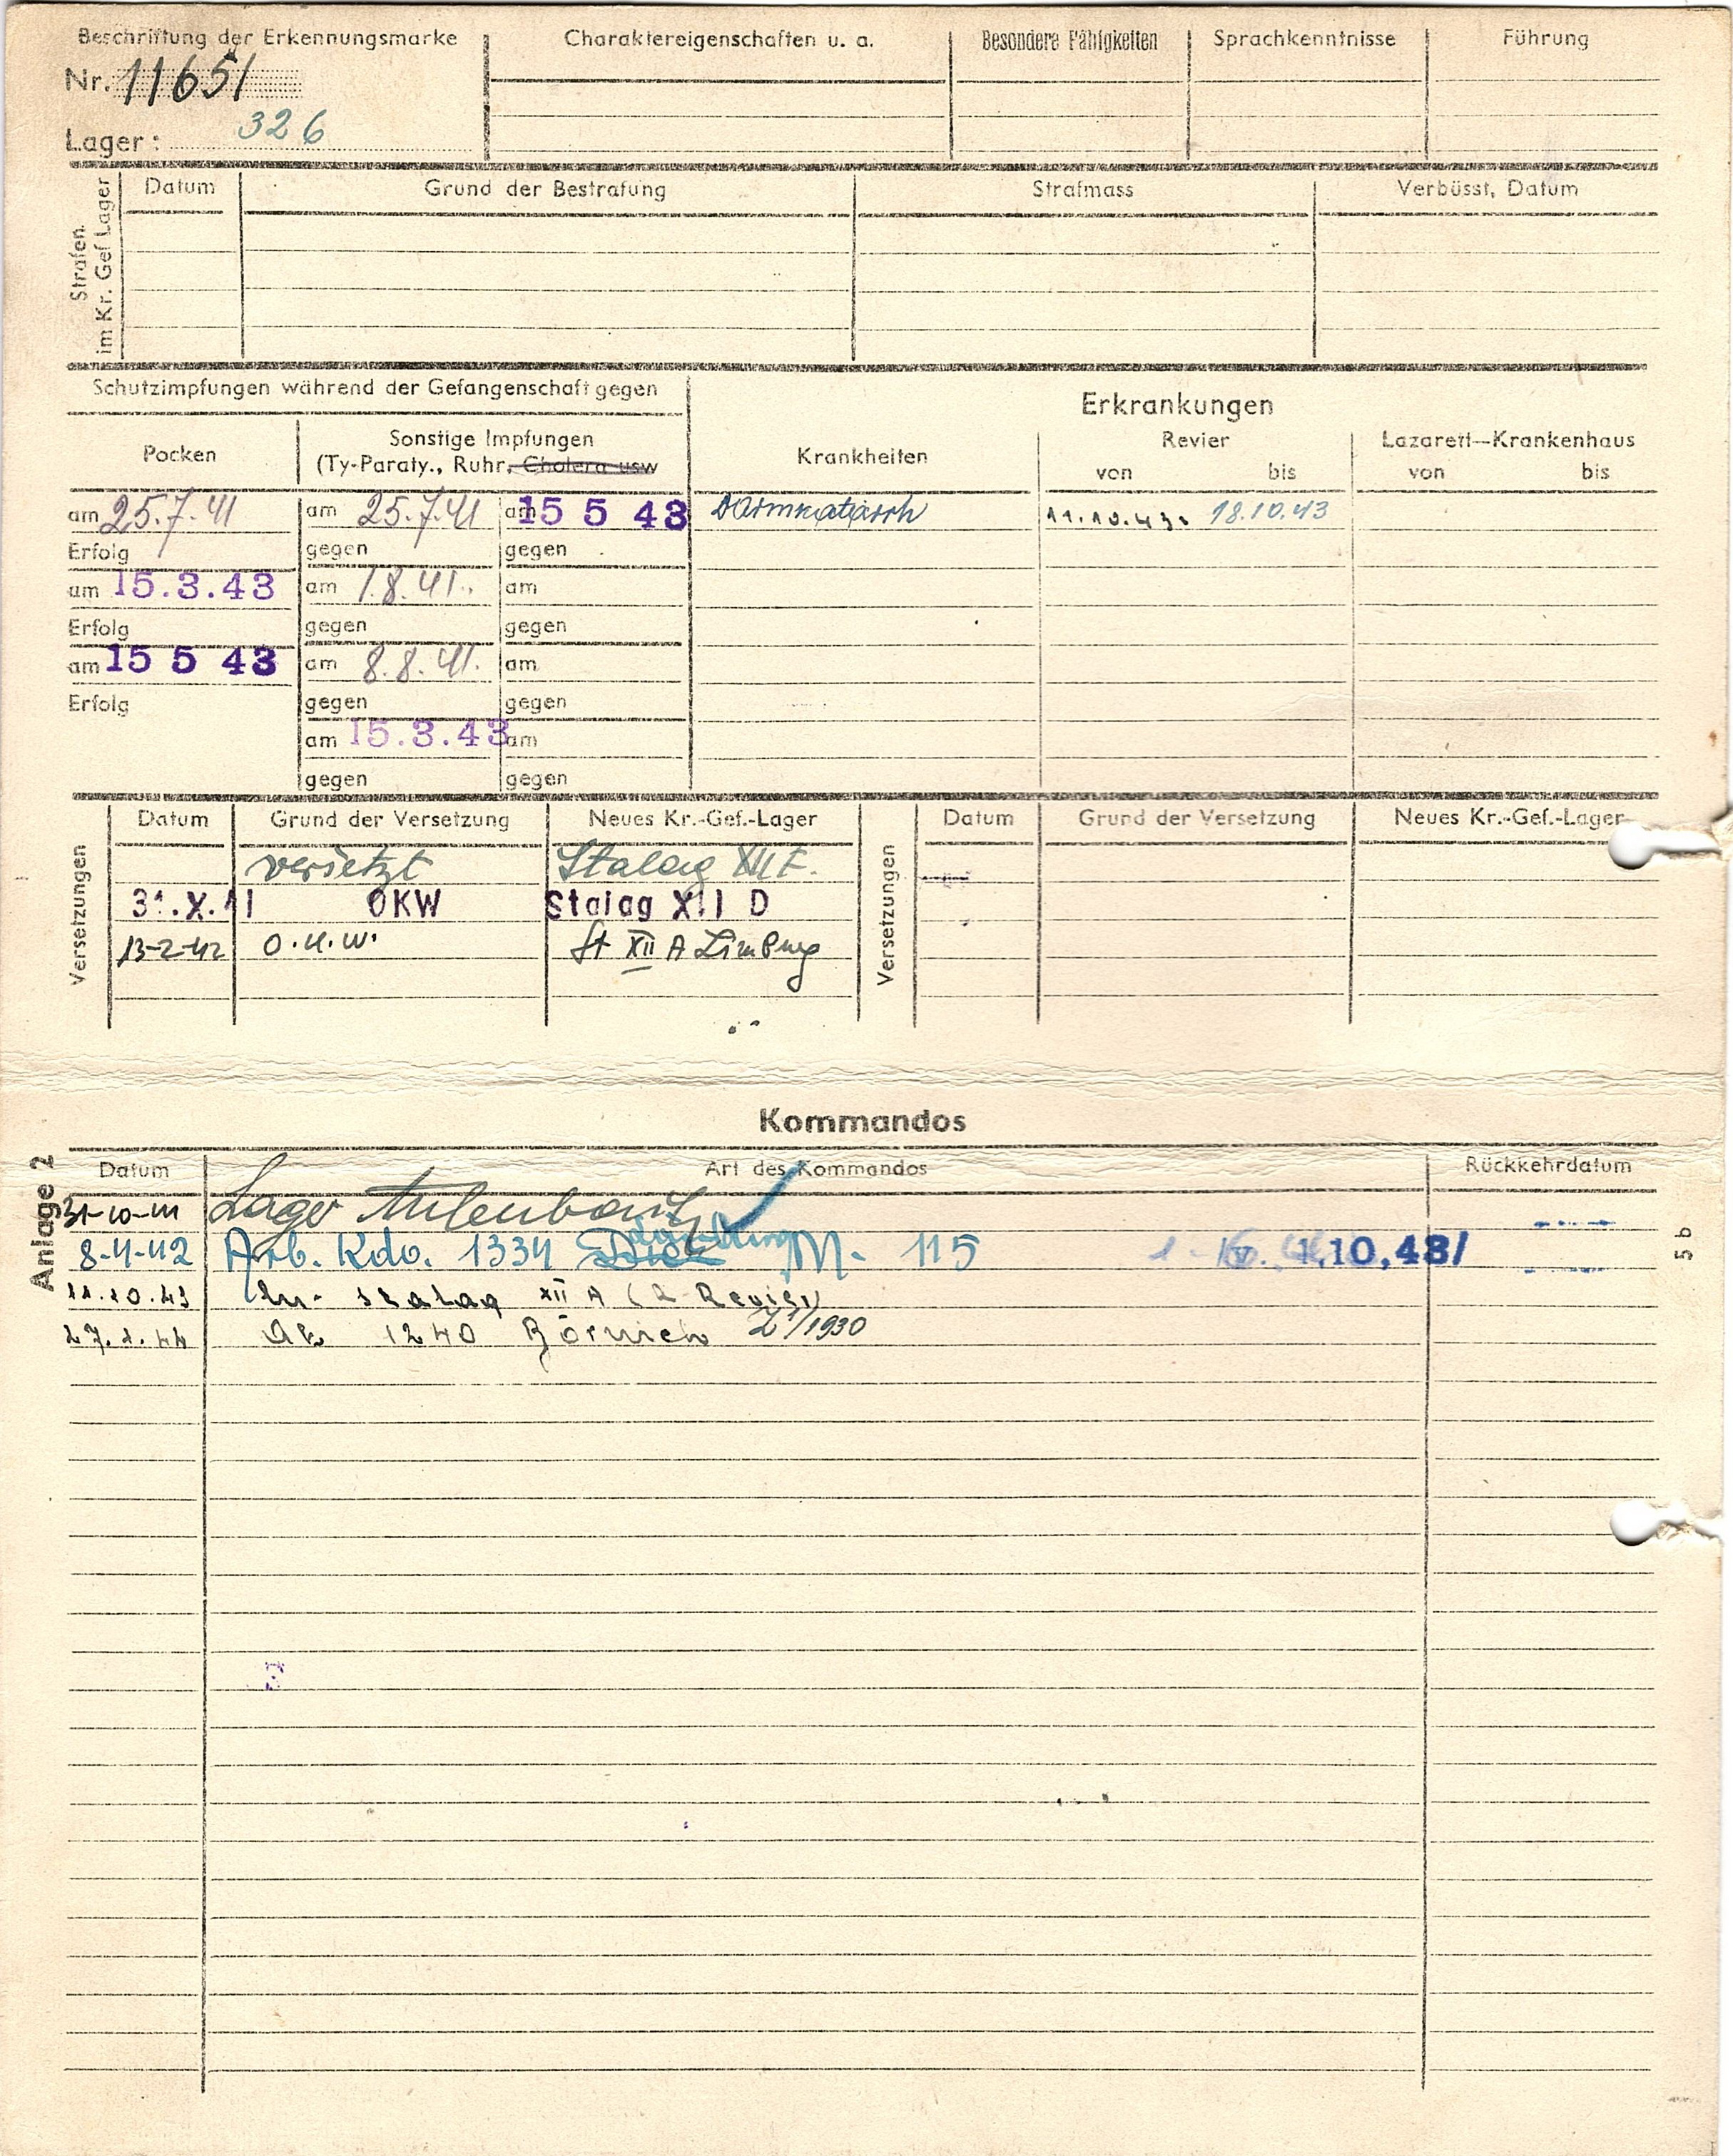 Beschriftung der Erkennungsmarke
Nr. 11651
Lager: 326
Charaktereigenschaften u. a.
Besondere Fähigkeiten
Sprachkenntnisse
Führung
Strafen im Kr. Gef Lager
Datum Grund der Bestrafung Strafmass Verbüsst, Datum
Schutzimpfungen während der Gefangenschaft gegen
Erkrankungen
Pocken
Sonstige Impfungen
(Ty-Paraty., Ruhr, Cholera usw
Krankheiten
Revier
von bis
Lazarett—Krankenhaus
von bis
am 25.7.41 am 25.7.41 am 15 5 43 Darmkatarrh 11.10.43. 18.10.43
Erfolg gegen gegen
am 15.3.43 am 1.8.41. am
Erfolg gegen gegen
am 15 5 43 am 8.8.41. am
Erfolg gegen gegen
am 15.3.43 am
gegen gegen
Versetzungen
Datum Grund der Versetzung Neues Kr.-Gef.-Lager
versetzt Stalag XII F.
31.X.41 OKW Stalag XII D
13-2-42 St XII A Limburg
Versetzungen
Datum Grund der Versetzung Neues Kr.-Gef.-Lager
Kommandos
Anlage 2
Datum Art des Kommandos Rückkehrdatum
31-10-41 Lager
8-4-42 Arb. Kdo. 1334 M- 115 10,43/
11.10.43 Stalag XII A (Revier)
27.1.44 AK 1240 /1930
5 b